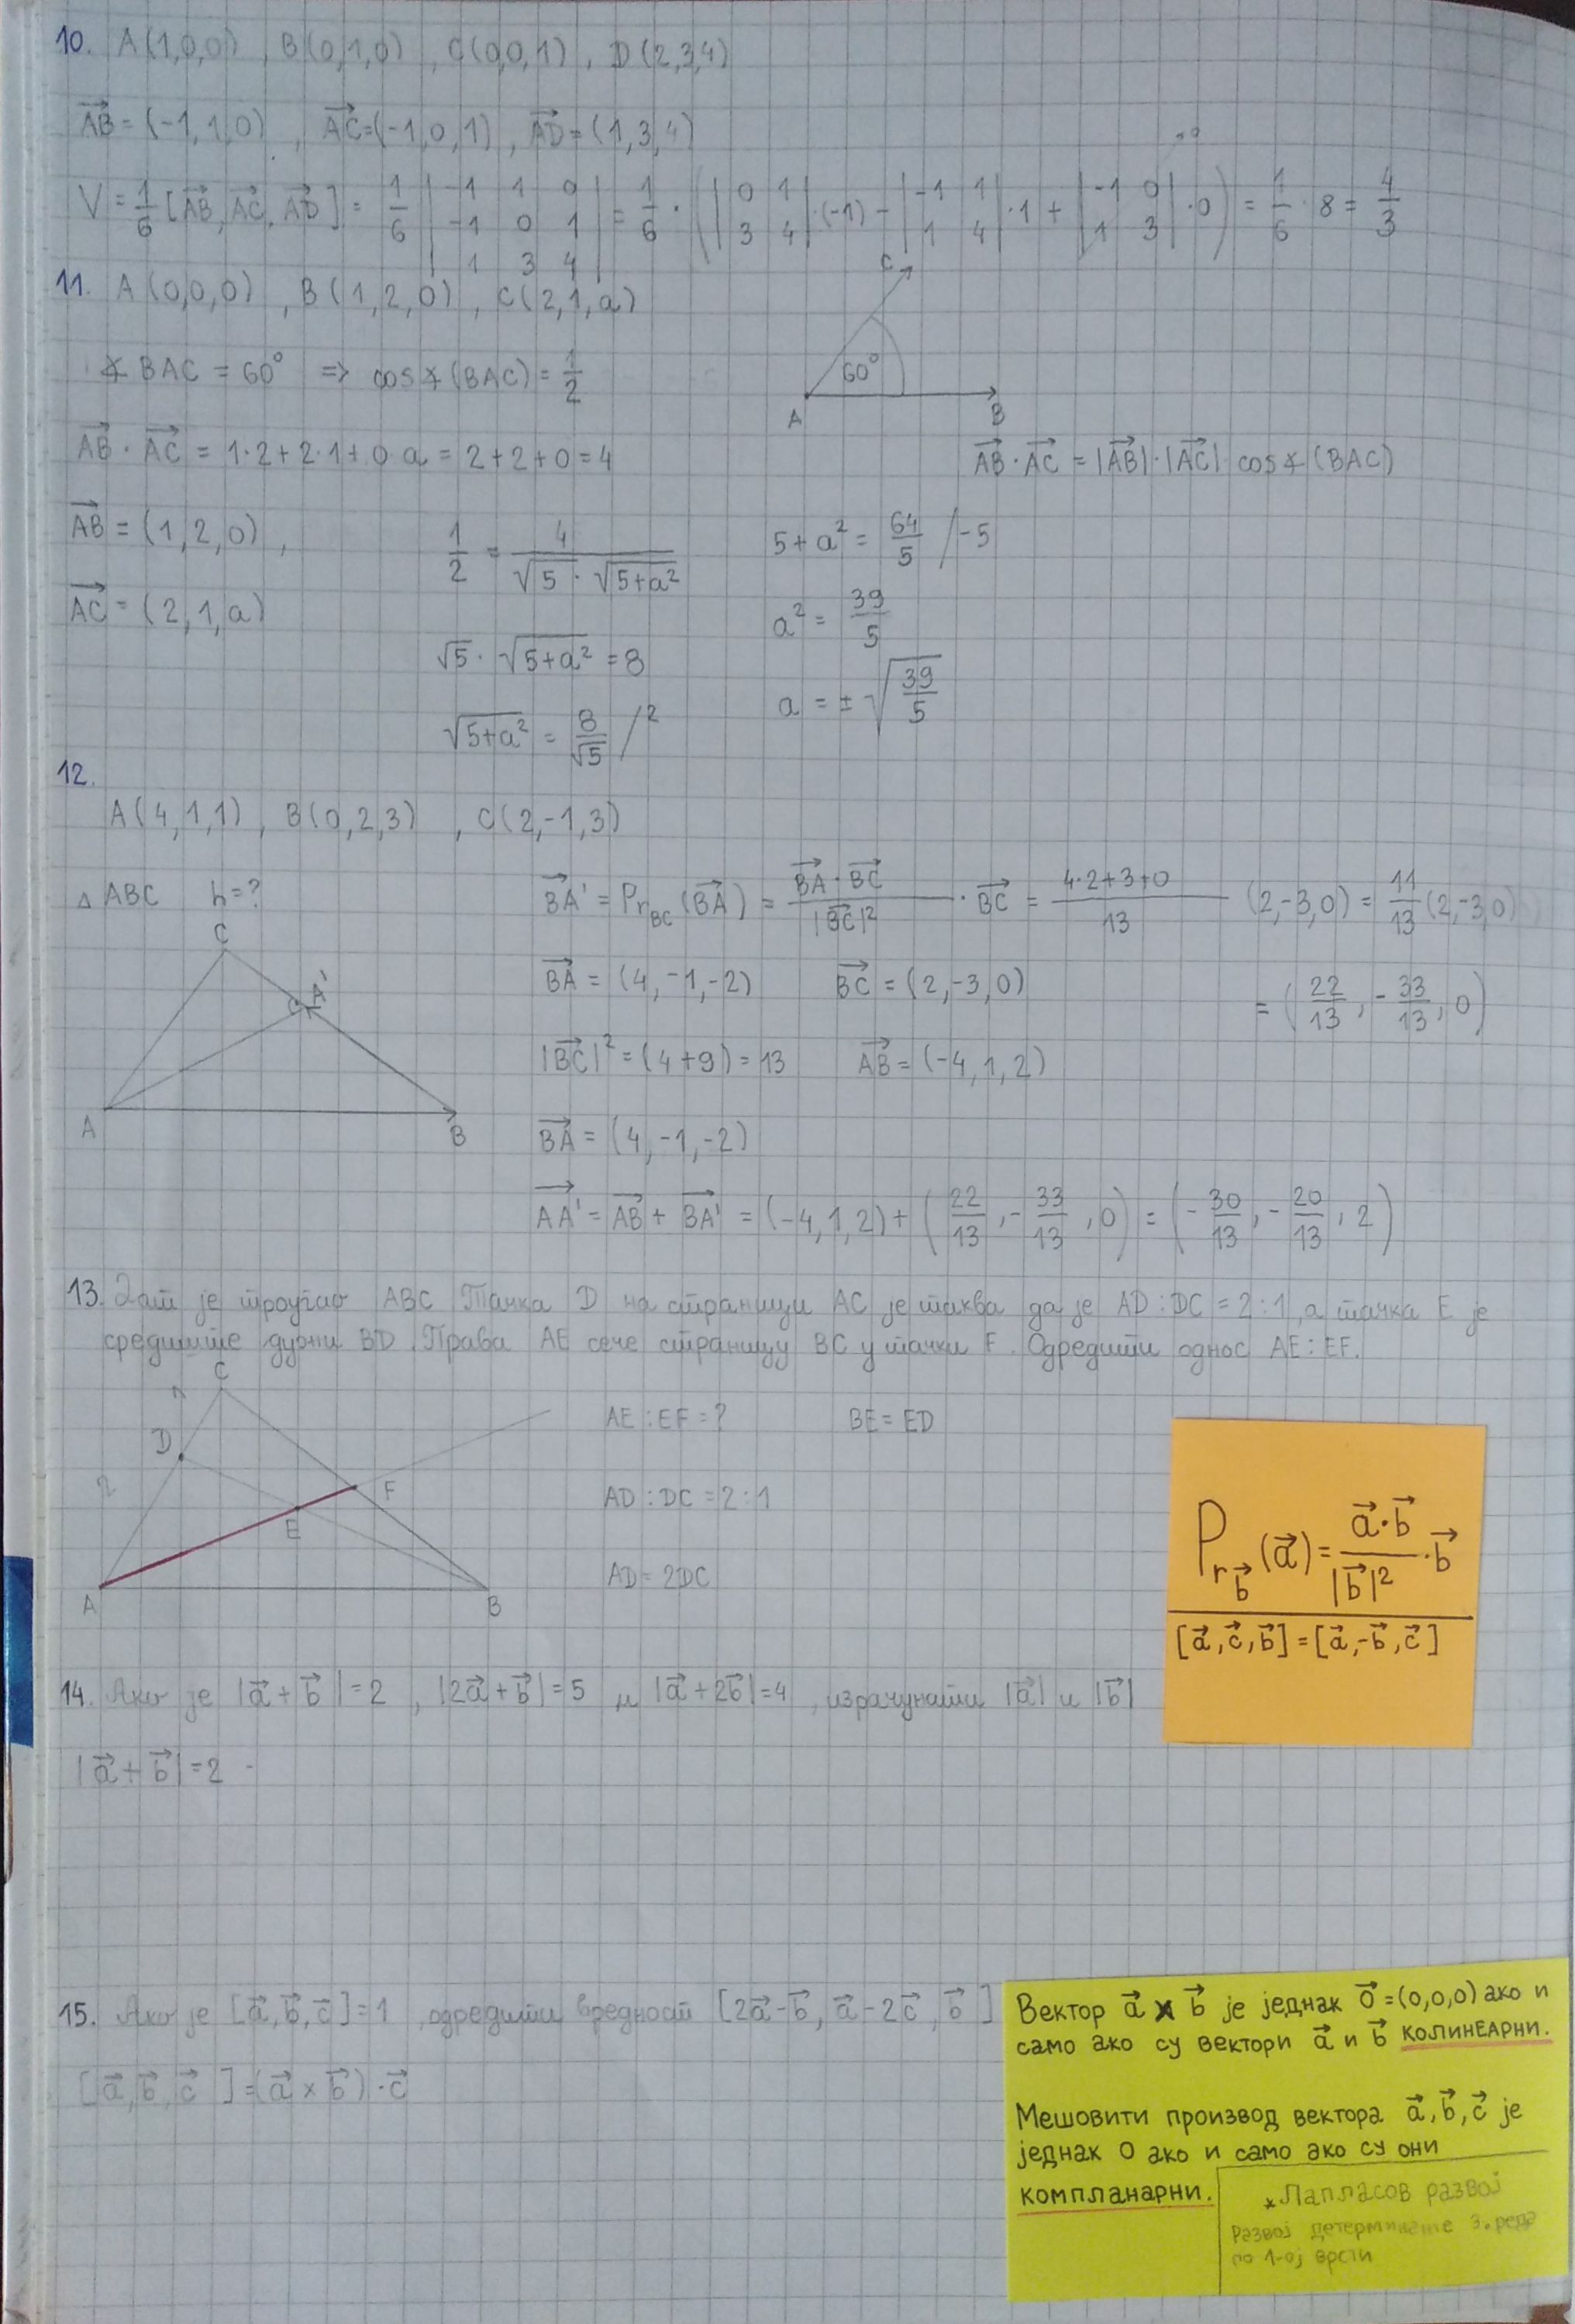 10. A(1,0,0) , B(0,1,0) , C(0,0,1) , D(2,3,4)
AB→ = (-1,1,0) , AC→=(-1,0,1) , AD→=(1,3,4)
V = 1/6 [AB→, AC→, AD→] = 1/6 |-1 1 0; -1 0 1; 1 3 4| = 1/6 · (|0 1; 3 4|·(-1) - |-1 1; 1 4|·1 + |-1 0; 1 3|·0) = 1/6 · 8 = 4/3
11. A(0,0,0) , B(1,2,0) , C(2,1,a)
C
∡BAC = 60° => cos∡(BAC) = 1/2
60°
A B
AB→ · AC→ = 1·2+2·1+0·a = 2+2+0=4
AB→ · AC→ = |AB→|·|AC→| cos∡(BAC)
AB→ = (1,2,0) ,
AC→ = (2,1,a)
1/2 = 4/(√5 · √(5+a²))
√5 · √(5+a²) = 8
√(5+a²) = 8/√5 /²
5+a² = 64/5 /-5
a² = 39/5
a = ± √(39/5)
12.
A(4,1,1) , B(0,2,3) , C(2,-1,3)
△ABC h=?
C
A'
A B
BA'→ = Pr_BC (BA→) = (BA→·BC→)/|BC→|² · BC→ = (4·2+3+0)/13 (2,-3,0) = 11/13 (2,-3,0)
BA→ = (4,-1,-2) BC→ = (2,-3,0)
= (22/13, -33/13, 0)
|BC→|² = (4+9) = 13 AB→ = (-4,1,2)
BA→ = (4,-1,-2)
AA'→ = AB→ + BA'→ = (-4,1,2) + (22/13, -33/13, 0) = (-30/13, -20/13, 2)
13. Дат је троугао ABC. Тачка D на страници AC је таква да је AD:DC = 2:1, а тачка E је
средиште дужи BD. Права AE сече страницу BC у тачки F. Одредити однос AE:EF.
C
1
D
2
F
E
A B
AE:EF=? BE=ED
AD:DC=2:1
AD=2DC
Pr_b→ (a→) = (a→·b→)/|b→|² · b→
[a→,c→,b→]=[a→,-b→,c→]
14. Ако је |a→+b→|=2 , |2a→+b→|=5 и |a→+2b→|=4 , израчунати |a→| и |b→|
|a→+b→|=2
15. Ако је [a→,b→,c→]=1 , одредити вредност [2a→-b→, a→-2c→, b→]
[a→,b→,c→]=(a→×b→)·c→
Вектор a→ × b→ је једнак 0→=(0,0,0) ако и
само ако су вектори a→ и b→ КОЛИНЕАРНИ.
Мешовити производ вектора a→,b→,c→ је
једнак 0 ако и само ако су они
КОМПЛАНАРНИ.
*Лапласов развој
Развој детерминанте 3. реда
по 1-ој врсти